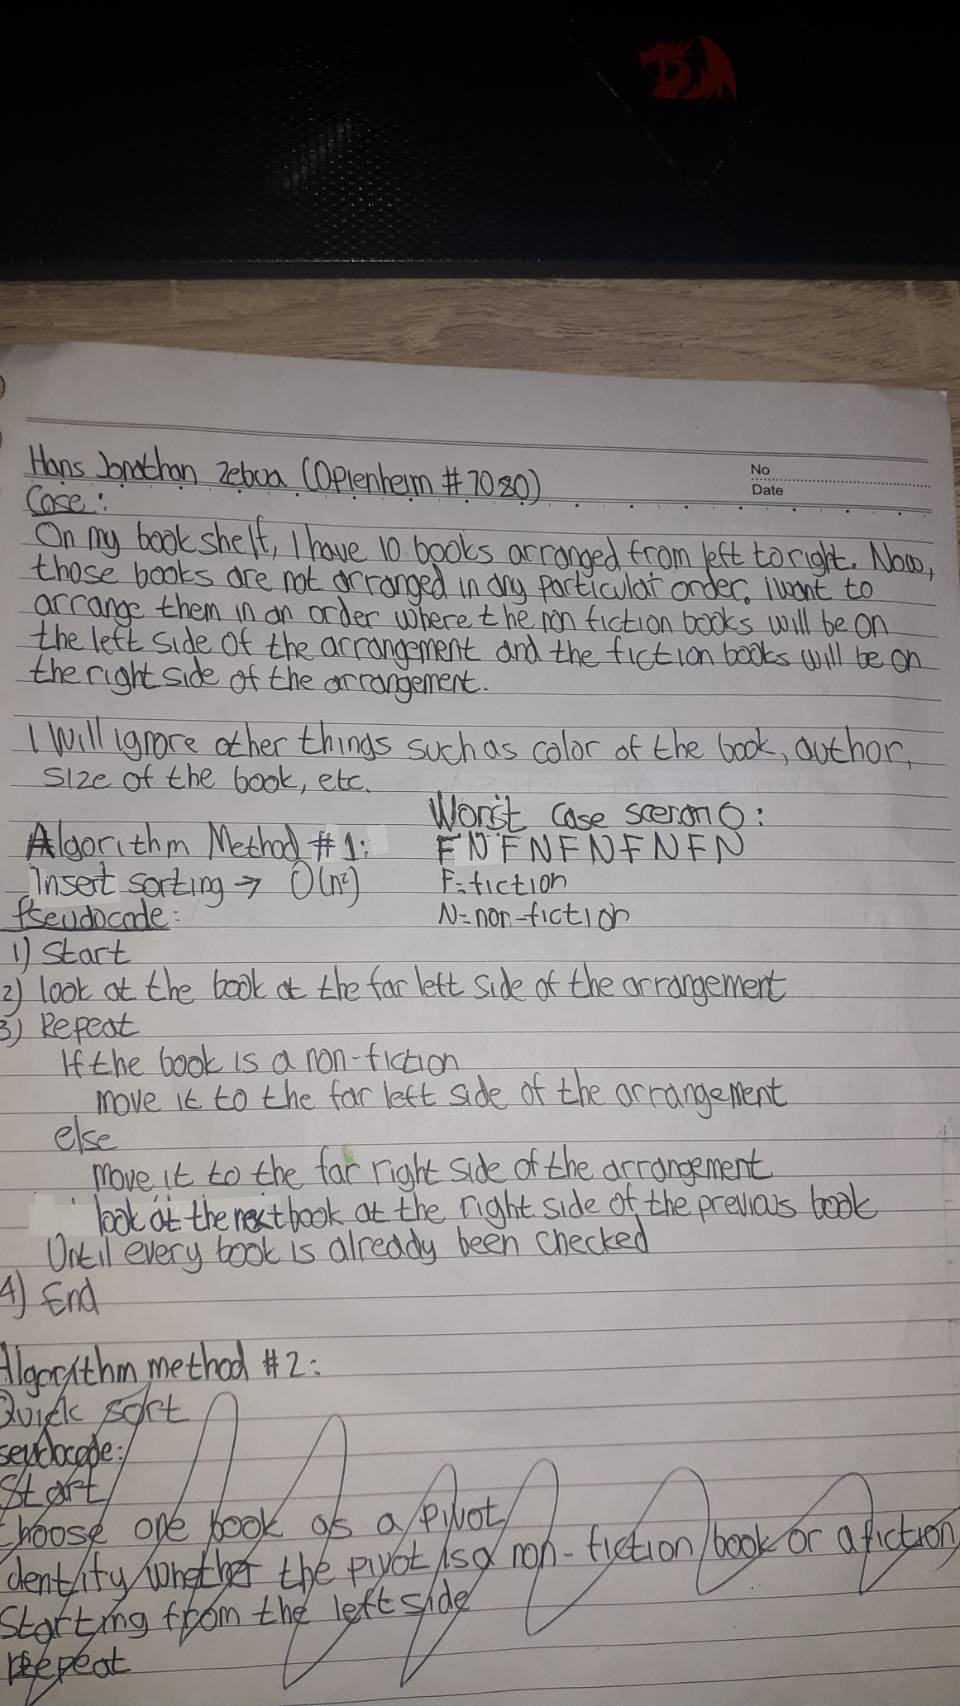 Hans Jonathan Zebua (Opienheim #7080)
No
Date
Case:
On my book shelf, I have 10 books arranged from left to right. Now,
those books are not arranged in any particular order. i want to
arrange them in an order where the non fiction books will be on
the left side of the arrangement and the fiction books will be on
the right side of the arrangement.
I will ignore other things such as color of the book, author,
size of the book, etc.
Worst case scenario:
Algorithm Method #1: F N F N F N F N F N
Insert sorting → O(n²) F=fiction
Pseudocode: N=non-fiction
1) Start
2) look at the book at the far left side of the arrangement
3) Repeat
If the book is a non-fiction
move it to the far left side of the arrangement
else
move it to the far right side of the arrangement
look at the next book at the right side of the previous book
Until every book is already been checked
4) End
Algorithm method #2:
Quick sort
seudocode:
Start
choose one book as a pivot
identify whether the pivot is a non-fiction book or a fiction
starting from the left side
Repeat